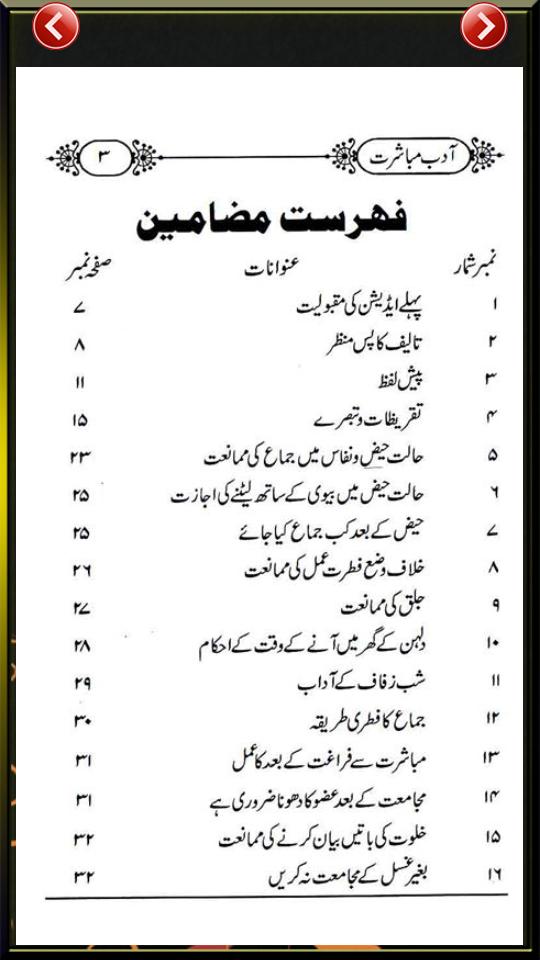 آدب مباشرت ۳
فہرست مضامین
نمبر شمار عنوانات صفحہ نمبر
۱ پہلے ایڈیشن کی مقبولیت ۷
۲ تالیف کا پس منظر ۸
۳ پیش لفظ ۱۱
۴ تقریظات و تبصرے ۱۵
۵ حالت حیض و نفاس میں جماع کی ممانعت ۲۳
۶ حالت حیض میں بیوی کے ساتھ لیٹنے کی اجازت ۲۵
۷ حیض کے بعد کب جماع کیا جائے ۲۵
۸ خلاف وضع فطرت عمل کی ممانعت ۲۶
۹ جلق کی ممانعت ۲۷
۱۰ دلہن کے گھر میں آنے کے وقت کے احکام ۲۸
۱۱ شب زفاف کے آداب ۲۹
۱۲ جماع کا فطری طریقہ ۳۰
۱۳ مباشرت سے فراغت کے بعد کا عمل ۳۱
۱۴ مجامعت کے بعد عضو کا دھونا ضروری ہے ۳۱
۱۵ خلوت کی باتیں بیان کرنے کی ممانعت ۳۲
۱۶ بغیر غسل کے مجامعت نہ کریں ۳۲